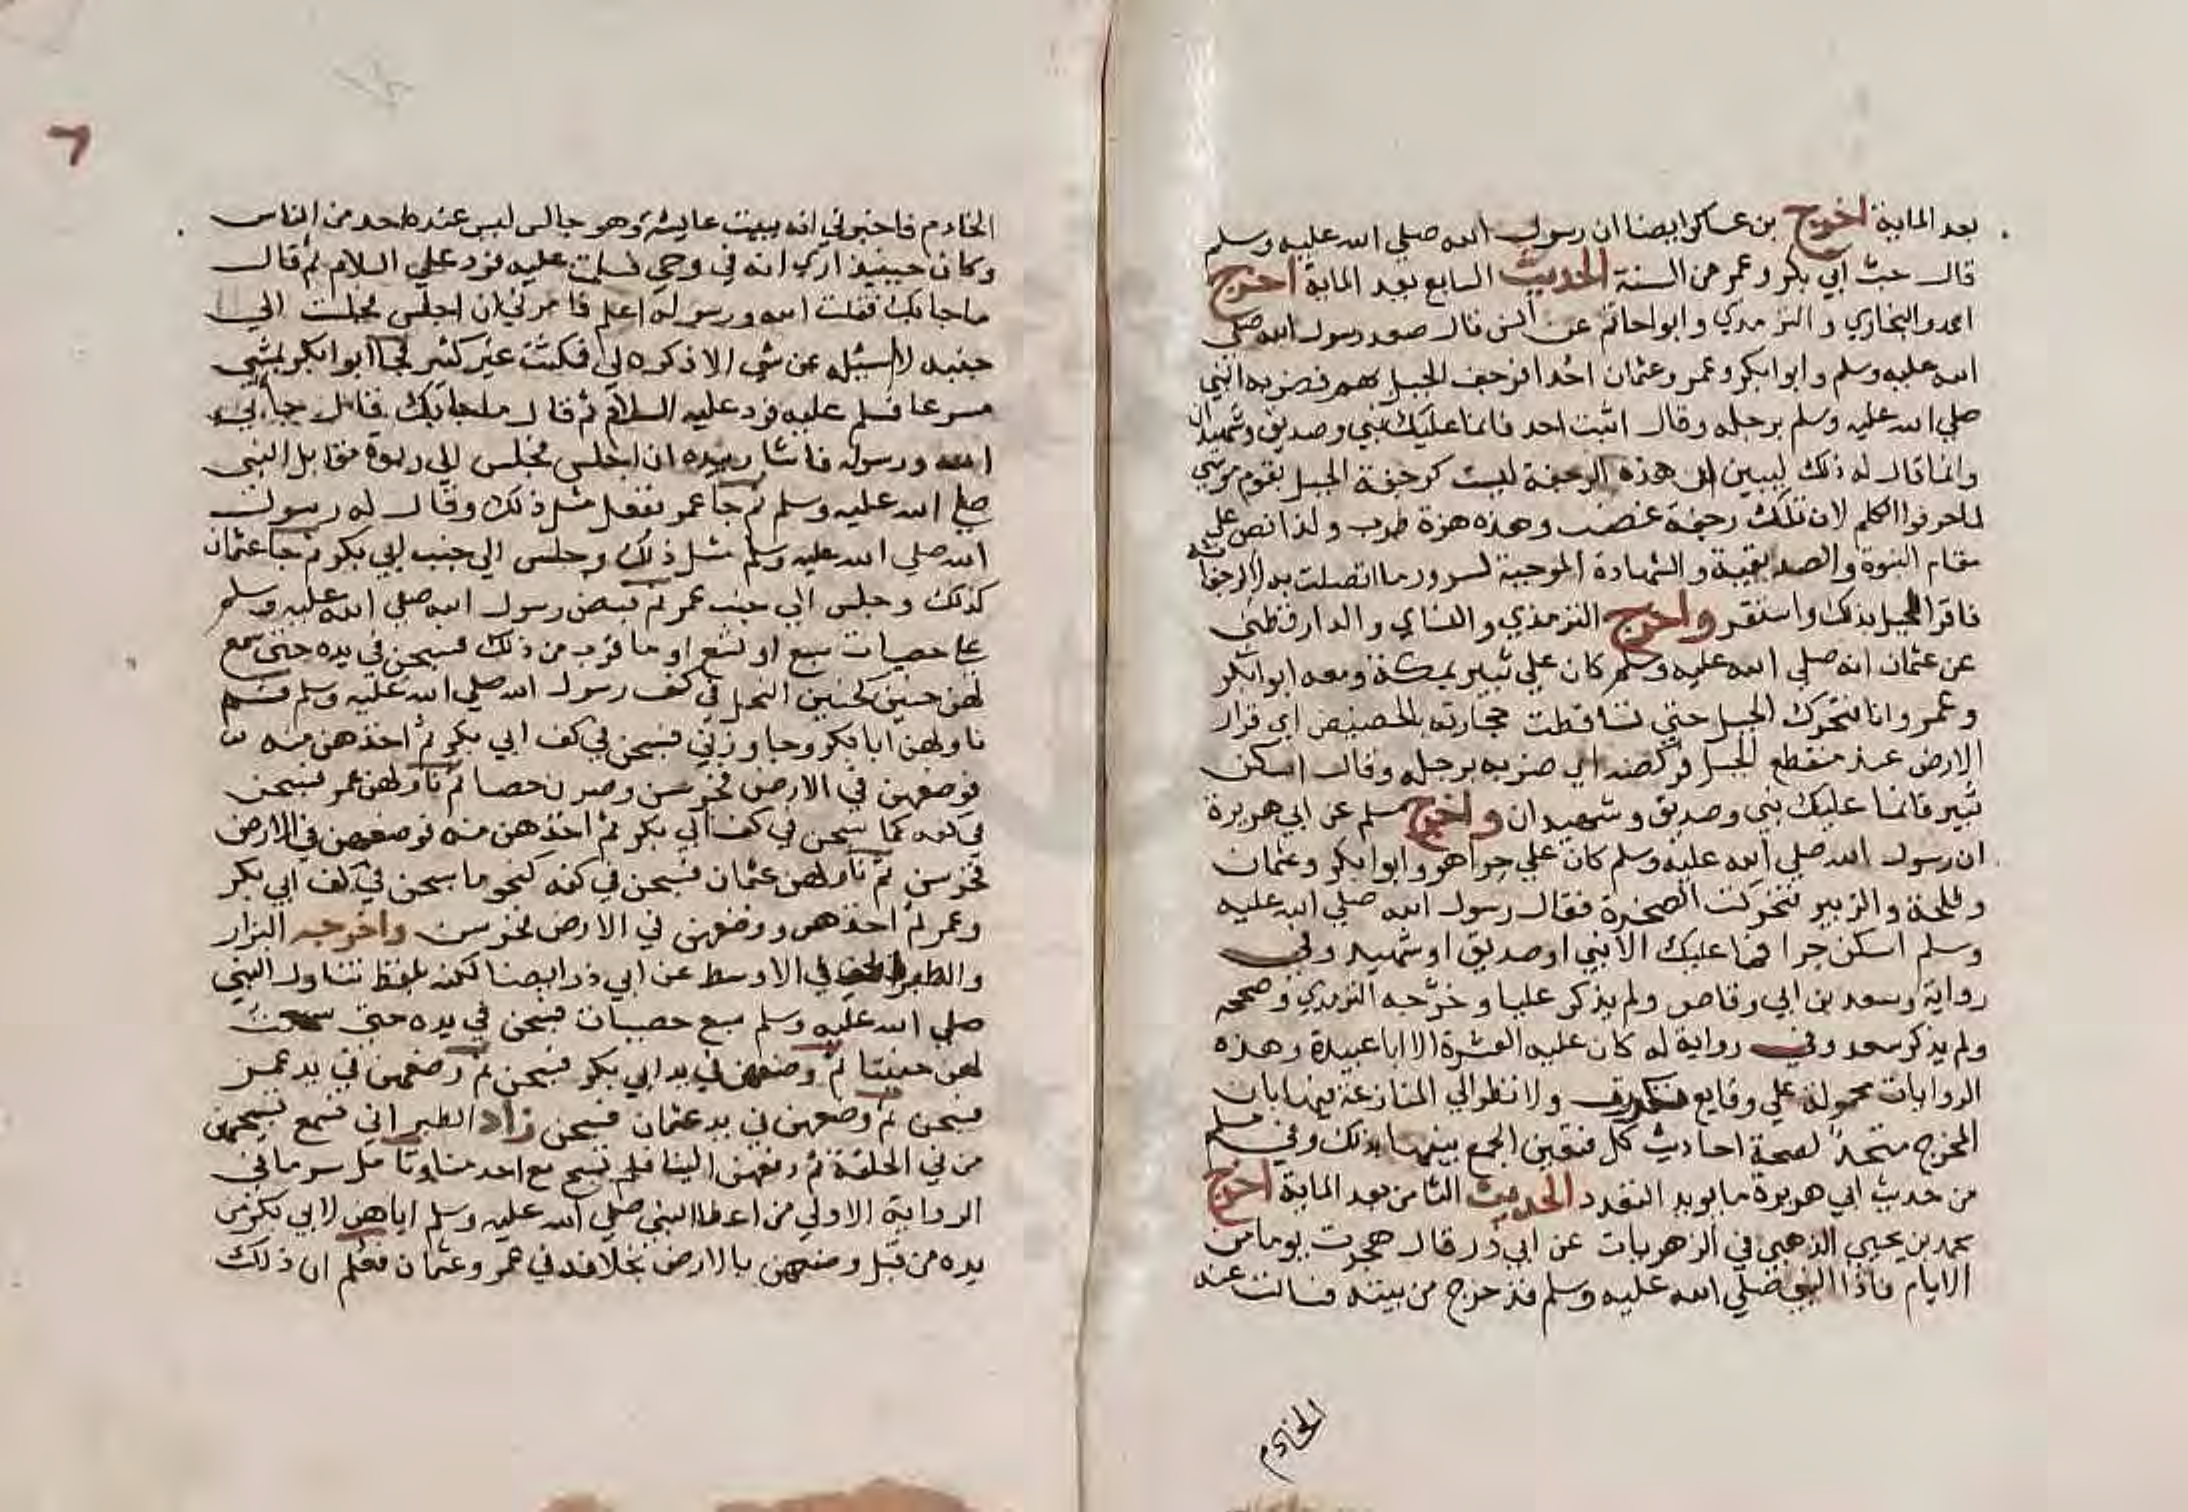 بعد الماية اخرج بن عساكر ايضا ان رسول الله صلي الله عليه وسلم
قال حب ابي بكر وعمر من السنة الحديث السابع بعد الماية اخرج
احمد والبخاري والترمذي وابو احاتم عن انس قال صعد رسول الله صلي
الله عليه وسلم وابوا بكر وعمر وعثمان احدا فرجف الجبل بهم فضربه النبي
صلي الله عليه وسلم برجله وقال اثبت احد فانما عليك نبي وصديق وشهيدان
وانما قال له ذلك ليبين ان هذه الرجفة ليست كرجفة الجبل بقوم موسي
لما حرفوا الكلم لان تلك رجفة غضب وهذه هزة طرب ولذا نص علي
مقام النبوة والصديقية والشهادة الموجبة لسرور ما اتصلت به لا لرجفانه
فاقر الجبل بذلك واستقر واخرج الترمذي والنساي والدارقطني
عن عثمان انه صلي الله عليه وسلم كان علي ثبير بمكة ومعه ابو ابكر
وعمر وانا فتحرك الجبل حتي تساقطت حجارته بالحضيض اي قرار
الارض عند منقطع الجبل فركضه اي ضربه برجله وقال اسكن
ثبير فانما عليك نبي وصديق وشهيدان واخرج مسلم عن ابي هريرة
ان رسول الله صلي الله عليه وسلم كان علي حرا هو وابوا بكر وعثمان
وطلحة والزبير فتحركت الصخرة فقال رسول الله صلي الله عليه
وسلم اسكن حرا فما عليك الا نبي او صديق او شهيد وفي
رواية وسعد بن ابي وقاص ولم يذكر عليا وخرجه الترمذي وصححه
ولم يذكر سعد وفي رواية له كان عليه العشرة الا ابا عبيدة وهذه
الروايات محمولة علي وقايع ولا نظر الي المنازعة فيها بان
المخرج متحد لصحة احاديث كل فتعين الجمع بينهما بذلك وفي مسلم
من حديث ابي هريرة ما يويد التعدد الحديث الثامن بعد الماية اخرج
محمد بن يحيي الذهبي في الزهريات عن ابي ذر قال هجرت يوما من
الايام فاذا النبي صلي الله عليه وسلم قد خرج من بيته فسالت عنه
الخادم
٦
الخادم فاخبرني انه ببيت عايشة وهو جالس ليس عنده احد من الناس
وكان حينيذ اري انه في وحي فسلمت عليه فرد علي السلام ثم قال
ما جا بك فقلت الله ورسوله اعلم فامرني ان اجلس فجلست الي
جنبه لا اسئله عن شي الا ذكره لي فمكثت غير كثير فجا ابوا بكر يمشي
مسرعا فسلم عليه فرد عليه السلام ثم قال ما جا بك قال جا بي
الله ورسوله فاشار بيده ان اجلس فجلس الي ربوة مقابل النبي
صلي الله عليه وسلم ثم جا عمر ففعل مثل ذلك وقال له رسول
الله صلي الله عليه وسلم مثل ذلك وجلس الي جنب ابي بكر ثم جا عثمان
كذلك وجلس الي جنب عمر ثم قبض رسول الله صلي الله عليه وسلم
علي حصيات سبع او تسع او ما قرب من ذلك فسبحن في يده حتي سمع
لهن حنين كحنين النحل في كف رسول الله صلي الله عليه وسلم ثم
ناولهن ابا بكر وجاوزني فسبحن في كف ابي بكر ثم اخذهن منه
فوضعهن في الارض فخرسن وصرن حصا ثم ناولهن عمر فسبحن
في كفه كما سبحن في كف ابي بكر ثم اخذهن منه فوضعهن في الارض
فخرسن ثم ناولهن عثمان فسبحن في كفه كنحو ما سبحن في كف ابي بكر
وعمر ثم اخذهن ووضعهن في الارض فخرسن واخرجه البزار
والطبراني في الاوسط عن ابي ذر ايضا لكنه بلفظ تناول النبي
صلي الله عليه وسلم سبع حصيات فسبحن في يده حتي سمعت
لهن حنينا ثم وضعهن في يد ابي بكر فسبحن ثم وضعهن في يد عمر
فسبحن ثم وضعهن في يد عثمان فسبحن زاد الطبراني فسمع تسبيحهن
من في الحلقة ثم دفعهن الينا فلم تسبح مع احد منا وتامل سر ما في
الرواية الاولي من اعطا النبي صلي الله عليه وسلم اياهن لابي بكر من
يده من قبل وضعهن بالارض بخلافه في عمر وعثمان فعلم ان ذلك